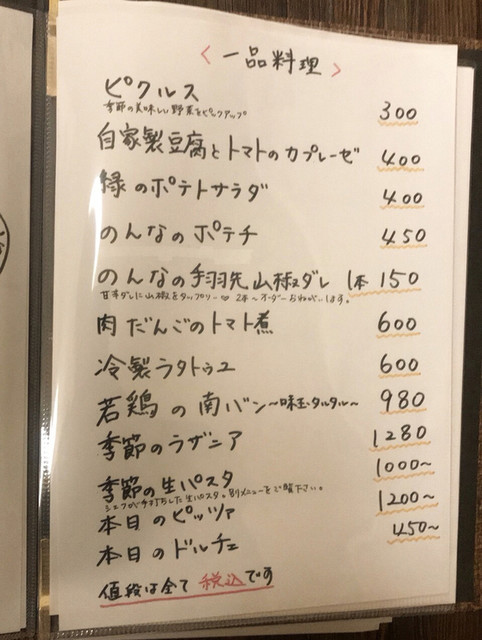 〈 一品料理 〉
ピクルス 300
季節の美味しい野菜をピックアップ
自家製豆腐とトマトのカプレーゼ 400
緑のポテトサラダ 400
のんなのポテチ 450
のんなの手羽先山椒ダレ 1本 150
甘辛ダレに山椒をタップリ〜♡ 2本〜オーダーおねがいします。
肉だんごのトマト煮 600
冷製ラタトゥユ 600
若鶏の南バン〜味玉タルタル〜 980
季節のラザニア 1280
季節の生パスタ 1000〜
シェフが手打ちした生パスタ。別メニューをご覧下さい。
本日のピッツァ 1200〜
本日のドルチェ 450〜
値段は全て税込です